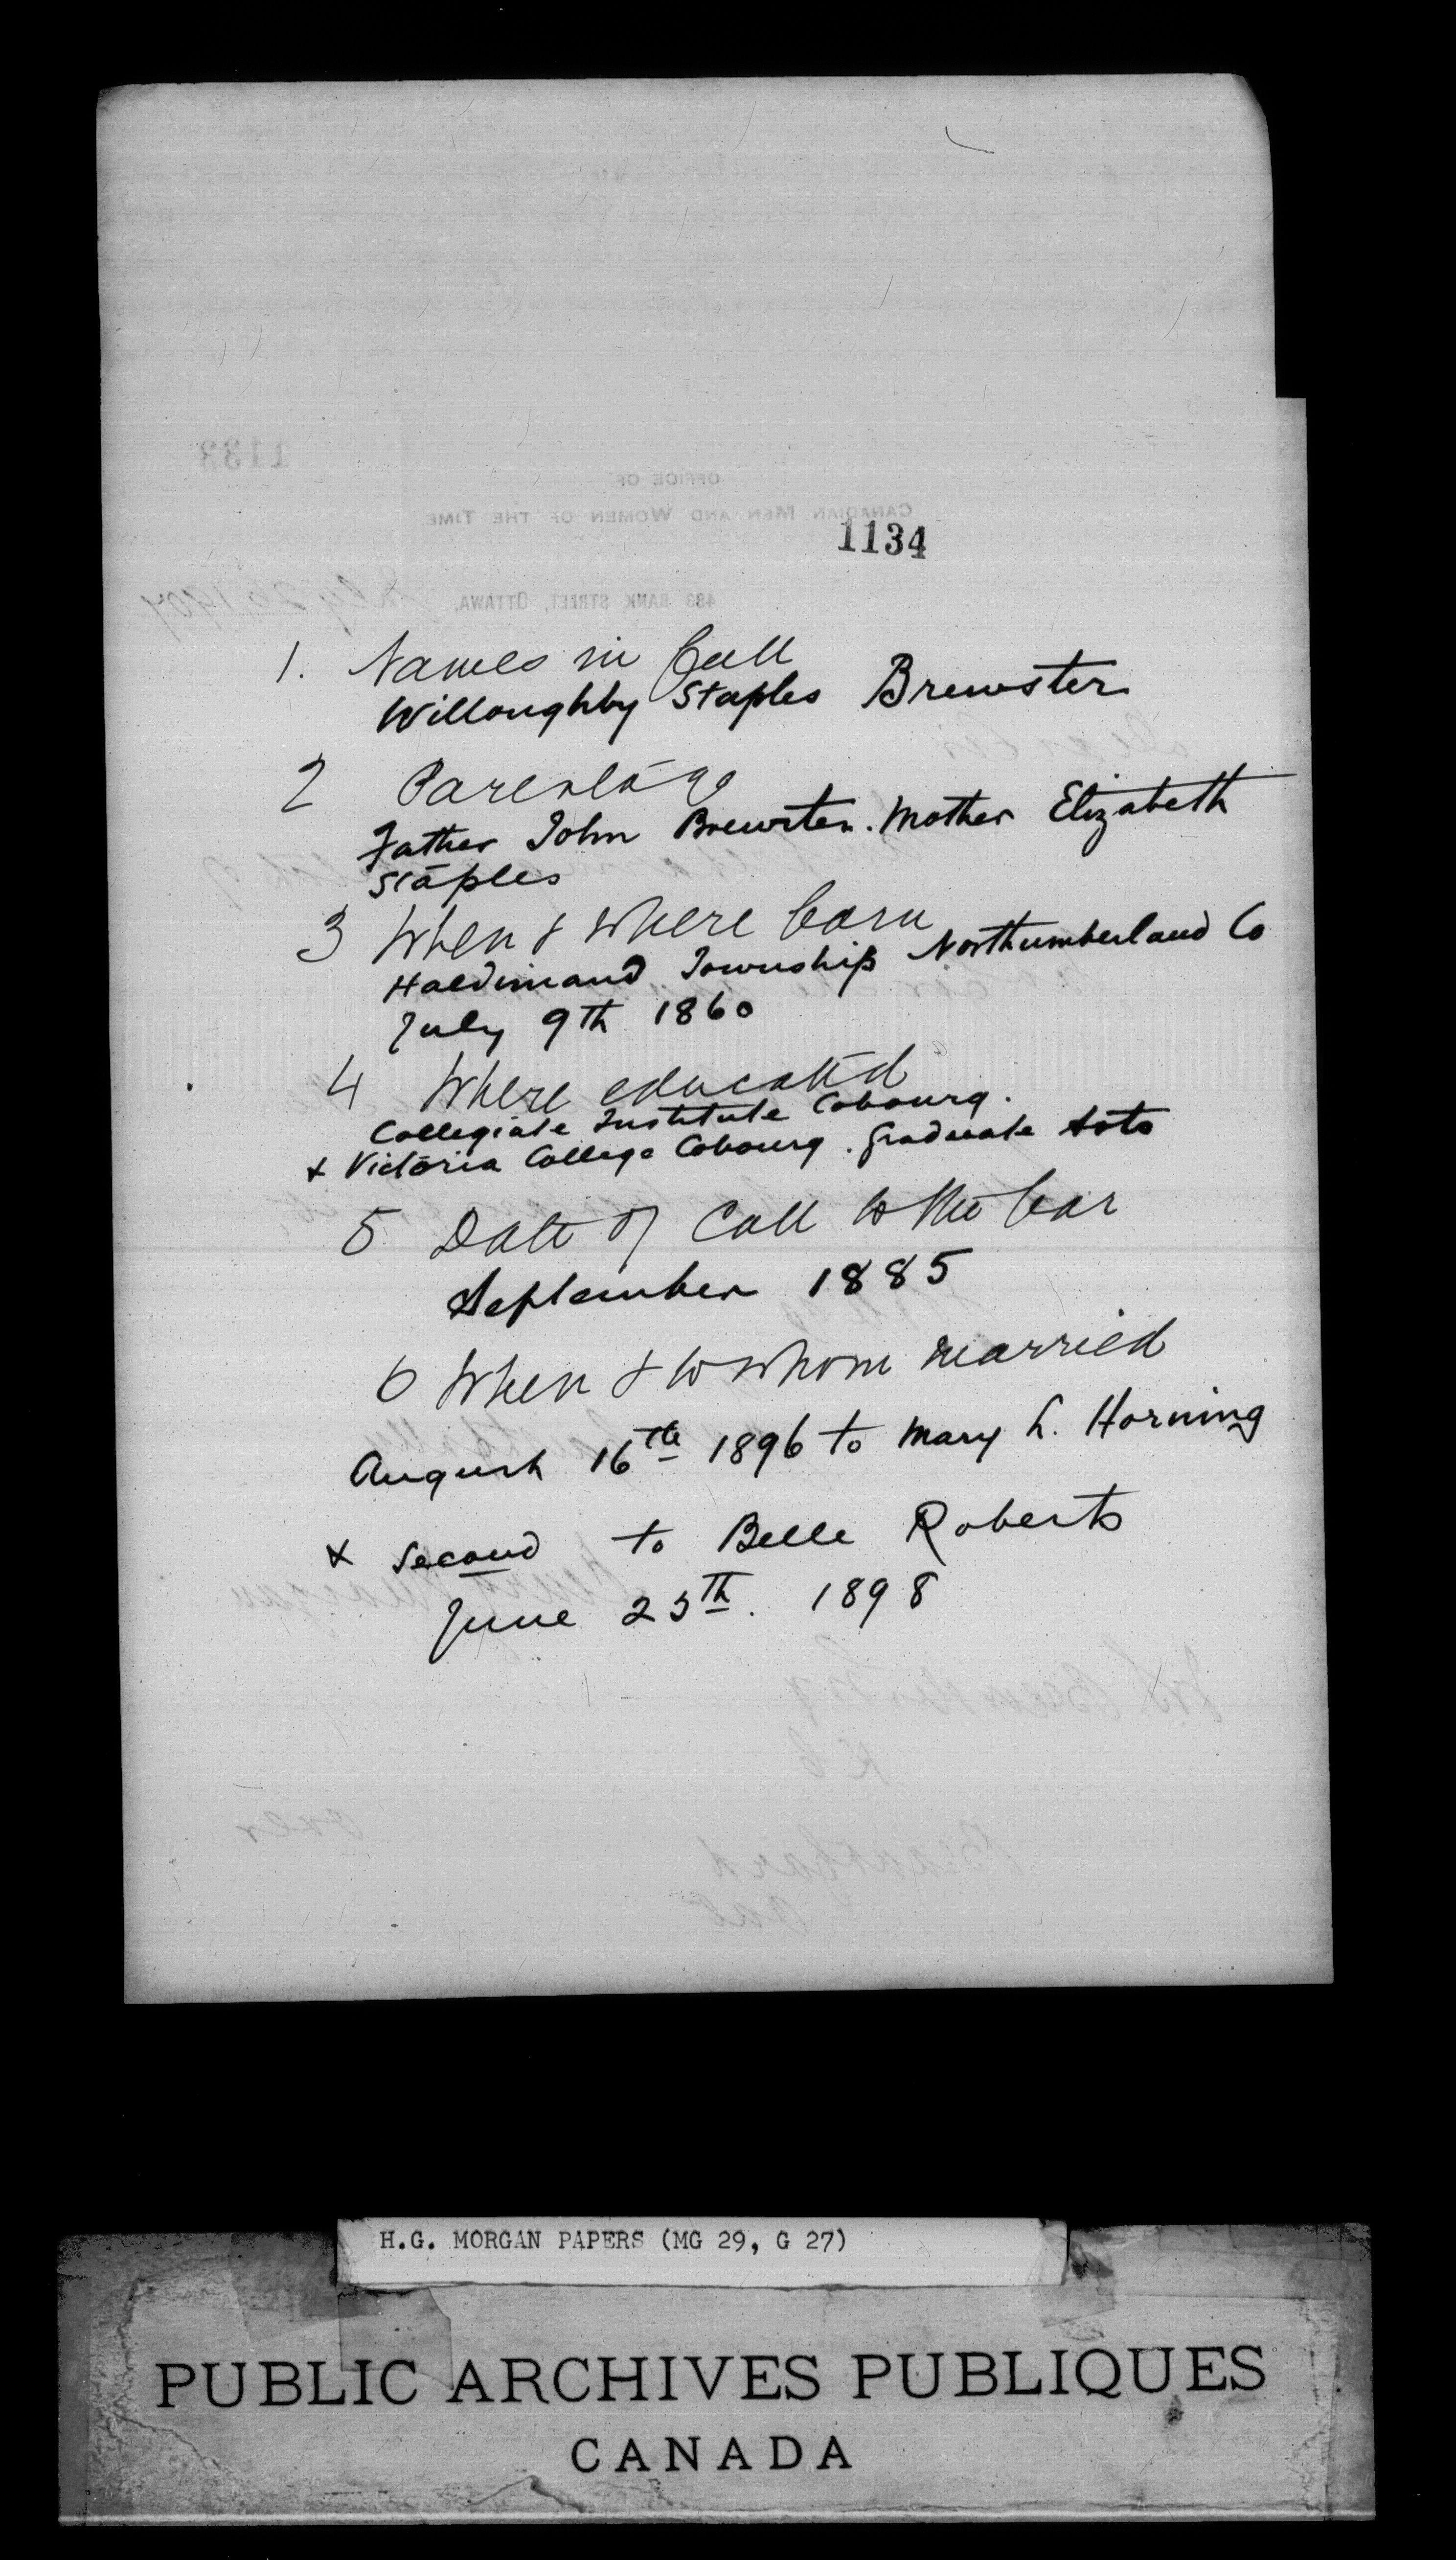 1134
1. Names in full
Willoughby Staples Brewster
2 Parentage
Father John Brewster. Mother Elizabeth
Staples
3 When & where born
Haldimand Township Northumberland Co
July 9th 1860
4 Where educated
Collegiate Institute Cobourg.
& Victoria College Cobourg. Graduate Arts
5 Date of Call to the bar
September 1885
6 When & to whom married
August 16th 1896 to Mary L. Horning
& second to Belle Roberts
June 25th. 1898
H.G. MORGAN PAPERS (MG 29, G 27)
PUBLIC ARCHIVES PUBLIQUES
CANADA